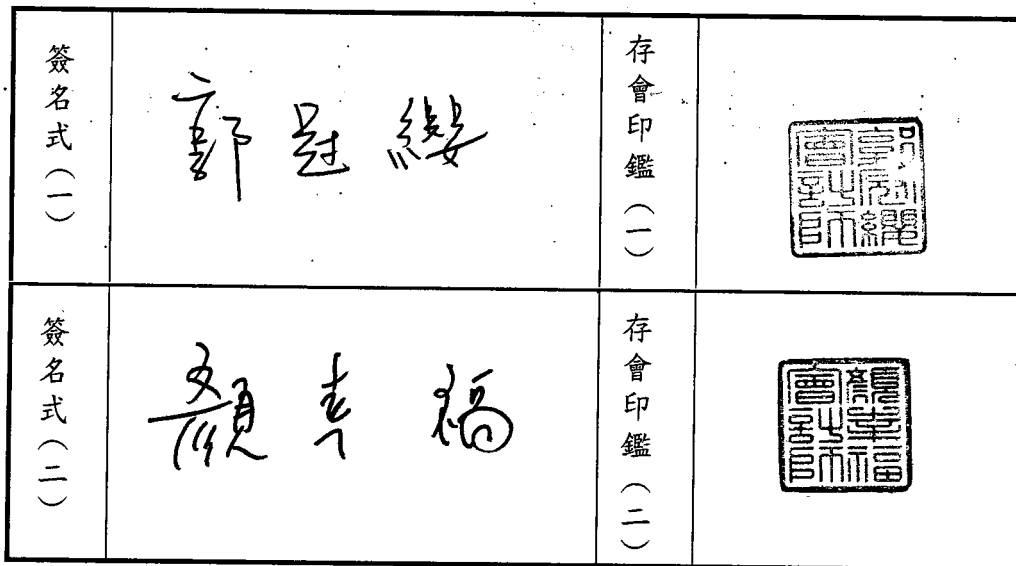 簽名式（一）
郭冠纓
存會印鑑（一）
郭冠纓
會計師
簽名式（二）
顏幸福
存會印鑑（二）
顏幸福
會計師